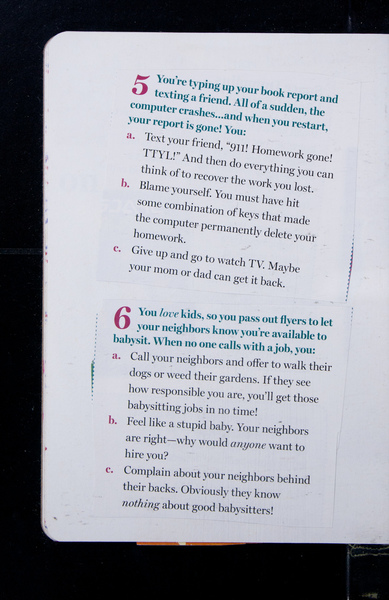 5 You're typing up your book report and
texting a friend. All of a sudden, the
computer crashes...and when you restart,
your report is gone! You:
a. Text your friend, "911! Homework gone!
TTYL!" And then do everything you can
think of to recover the work you lost.
b. Blame yourself. You must have hit
some combination of keys that made
the computer permanently delete your
homework.
c. Give up and go to watch TV. Maybe
your mom or dad can get it back.
6 You love kids, so you pass out flyers to let
your neighbors know you're available to
babysit. When no one calls with a job, you:
a. Call your neighbors and offer to walk their
dogs or weed their gardens. If they see
how responsible you are, you'll get those
babysitting jobs in no time!
b. Feel like a stupid baby. Your neighbors
are right—why would anyone want to
hire you?
c. Complain about your neighbors behind
their backs. Obviously they know
nothing about good babysitters!